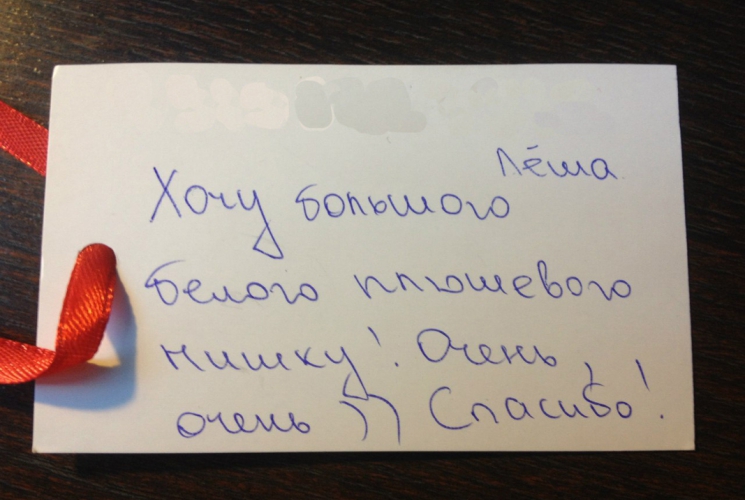 Лёша
Хочу большого
белого плюшевого
мишку! Очень,
очень )) Спасибо!